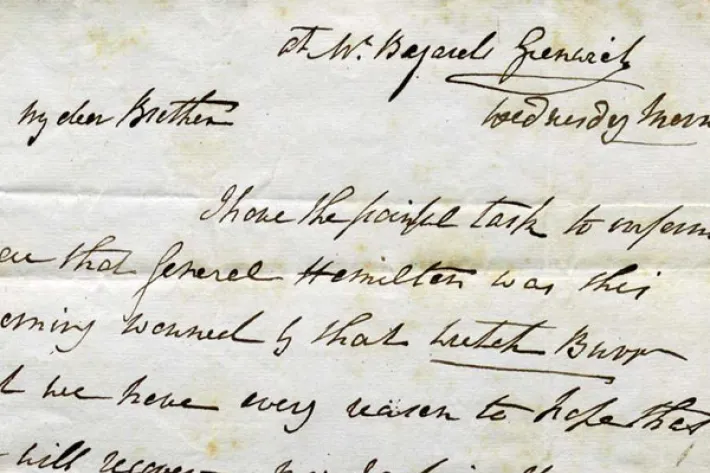 at Mr. Bayards Greenwich
Wednesday Morn
My dear Brother
I have the painful task to inform
you that General Hamilton was this
morning wounded by that wretch Burr
but we have every reason to hope that
will recover